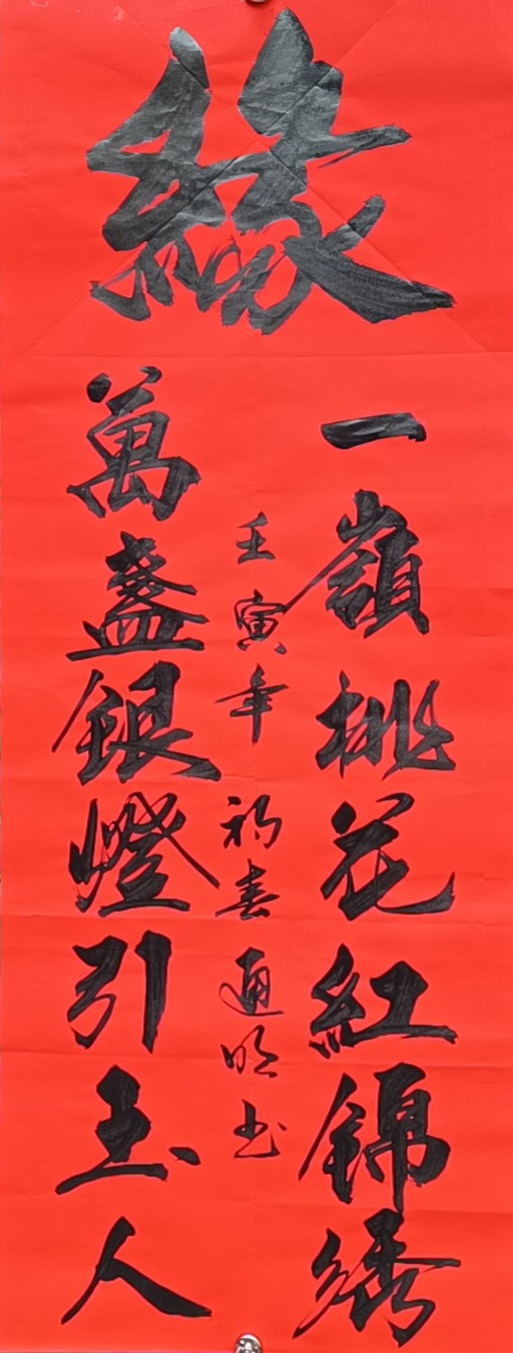 緣
一嶺桃花紅錦綉
萬盞銀燈引玉人
壬寅年 初春 通明书